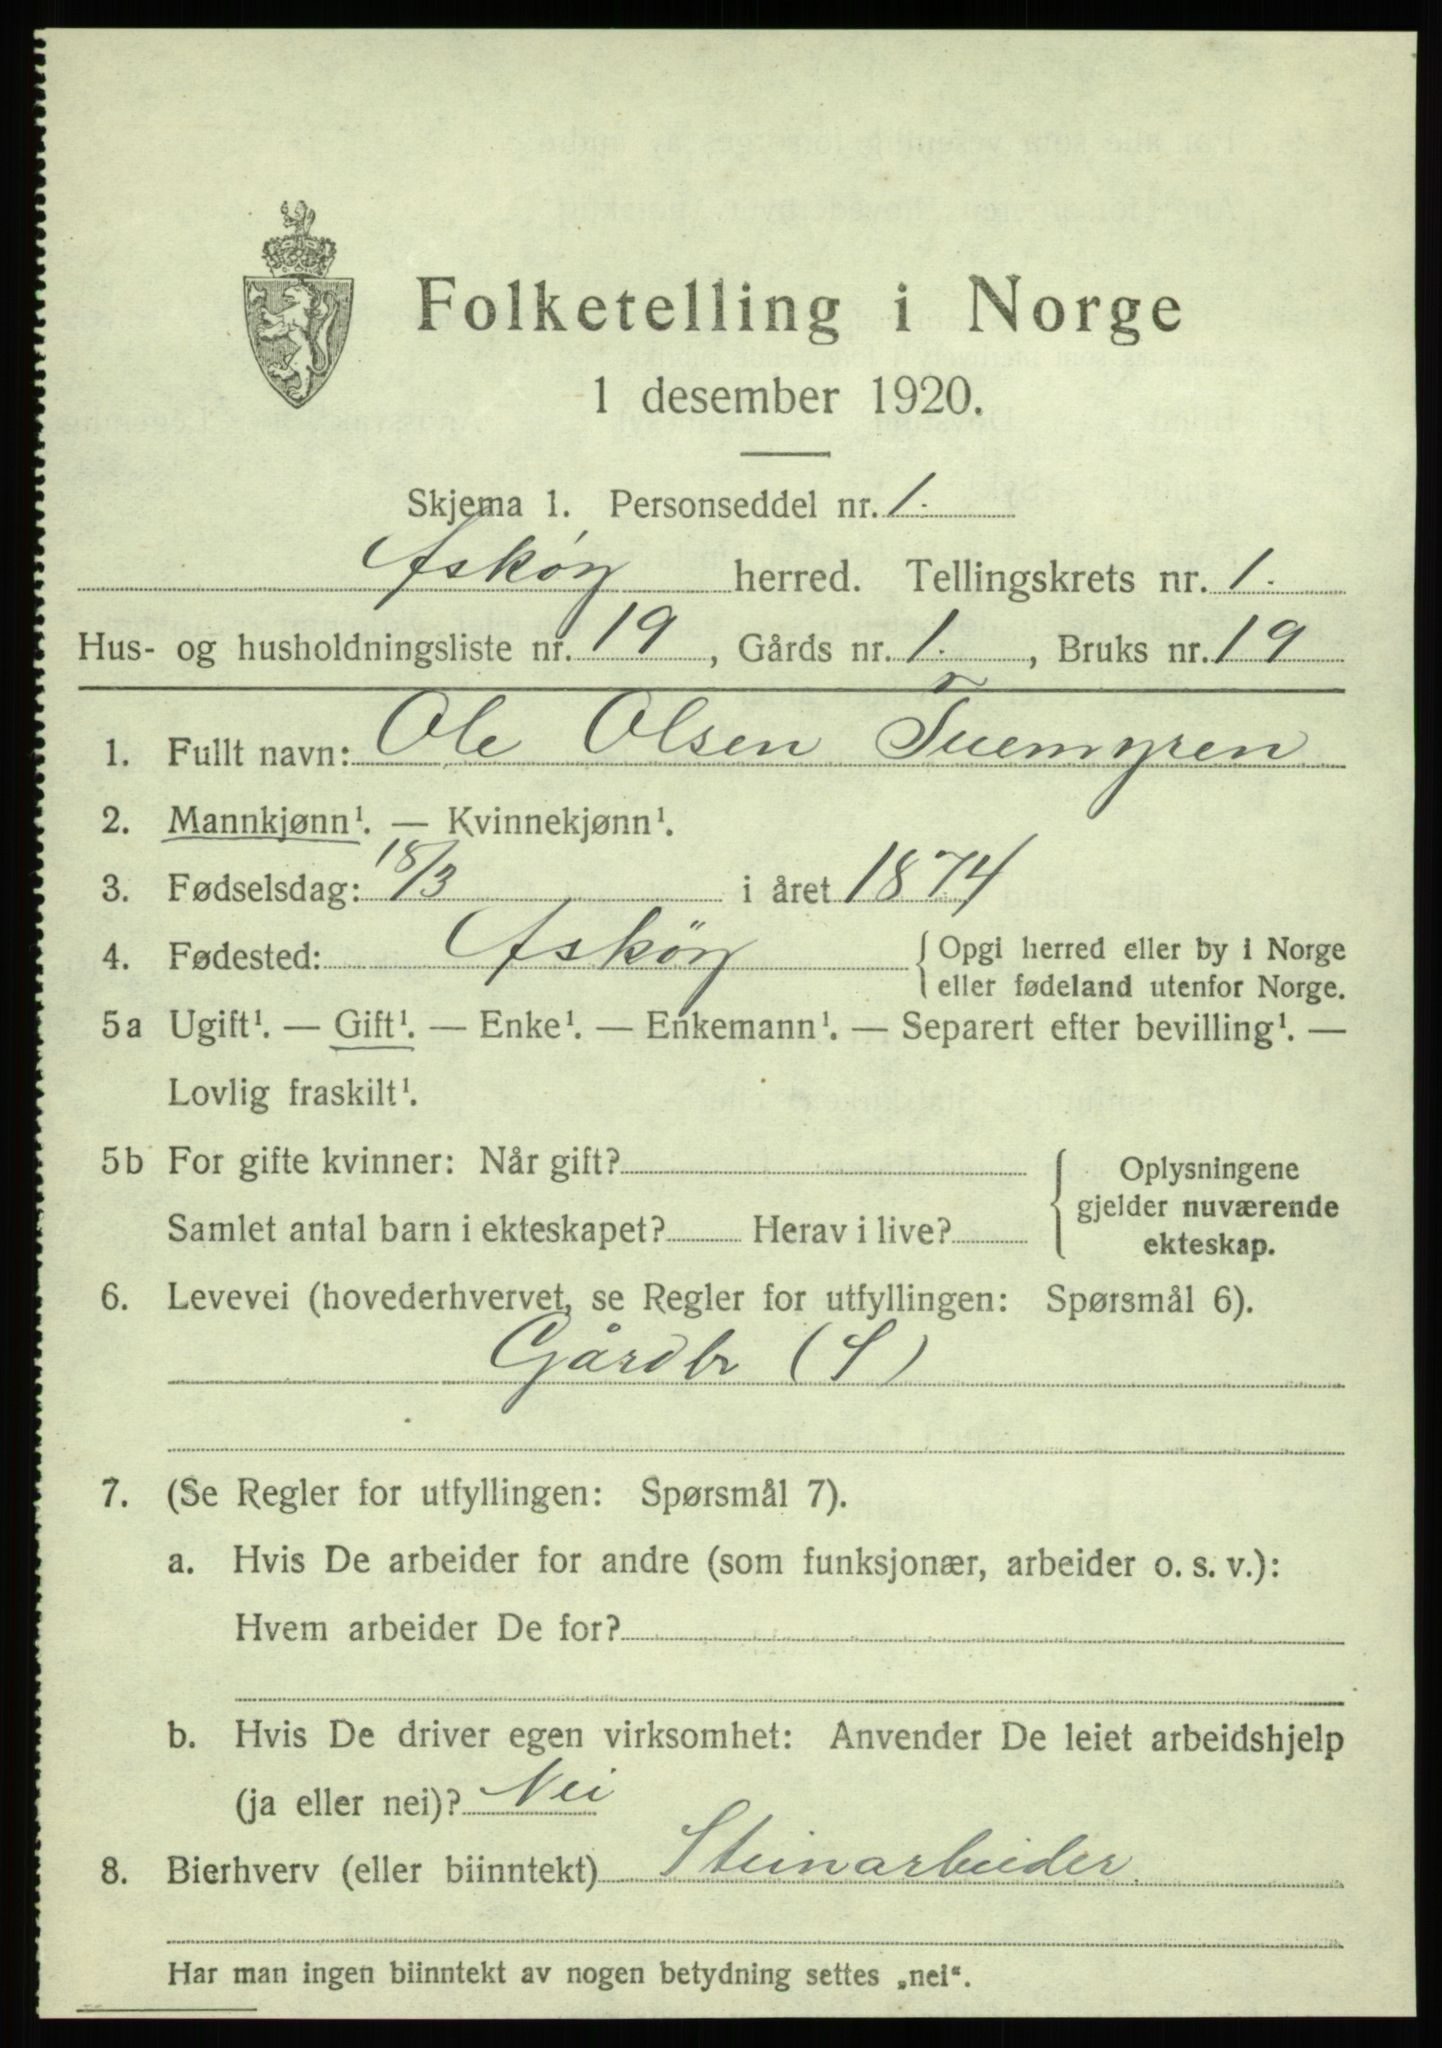 Folketelling i Norge
1 desember 1920.
Skjema 1. Personseddel nr. 1.
Askøy herred. Tellingskrets nr. 1.
Hus- og husholdningsliste nr. 19, Gårds nr. 1., Bruks nr. 19
1. Fullt navn: Ole Olsen Tuemyren
2. Mannkjønn¹. — Kvinnekjønn¹.
3. Fødselsdag: 18/3 i året 1874
4. Fødested: Askøy { Opgi herred eller by i Norge
eller fødeland utenfor Norge.
5a Ugift¹. — Gift¹. — Enke¹. — Enkemann¹. — Separert efter bevilling¹. —
Lovlig fraskilt¹.
5b For gifte kvinner: Når gift? { Oplysningene
gjelder nuværende
Samlet antal barn i ekteskapet? Herav i live? ekteskap.
6. Levevei (hovederhvervet, se Regler for utfyllingen: Spørsmål 6).
Gårdbr (S)
7. (Se Regler for utfyllingen: Spørsmål 7).
a. Hvis De arbeider for andre (som funksjonær, arbeider o. s. v.):
Hvem arbeider De for?
b. Hvis De driver egen virksomhet: Anvender De leiet arbeidshjelp
(ja eller nei)? Nei
8. Bierhverv (eller biinntekt) Steinarbeider
Har man ingen biinntekt av nogen betydning settes „nei“.